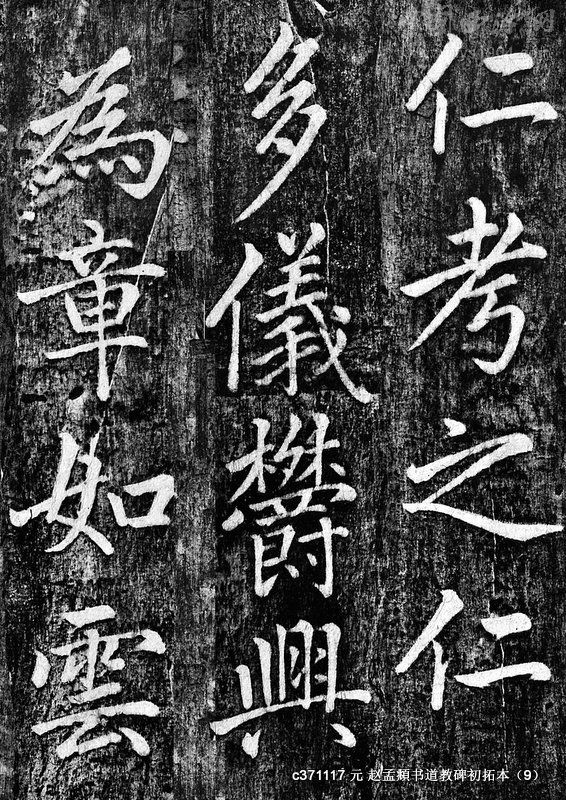 仁考之仁
多儀欝興
為章如雲
c371117 元 赵孟頫书道教碑初拓本（9）